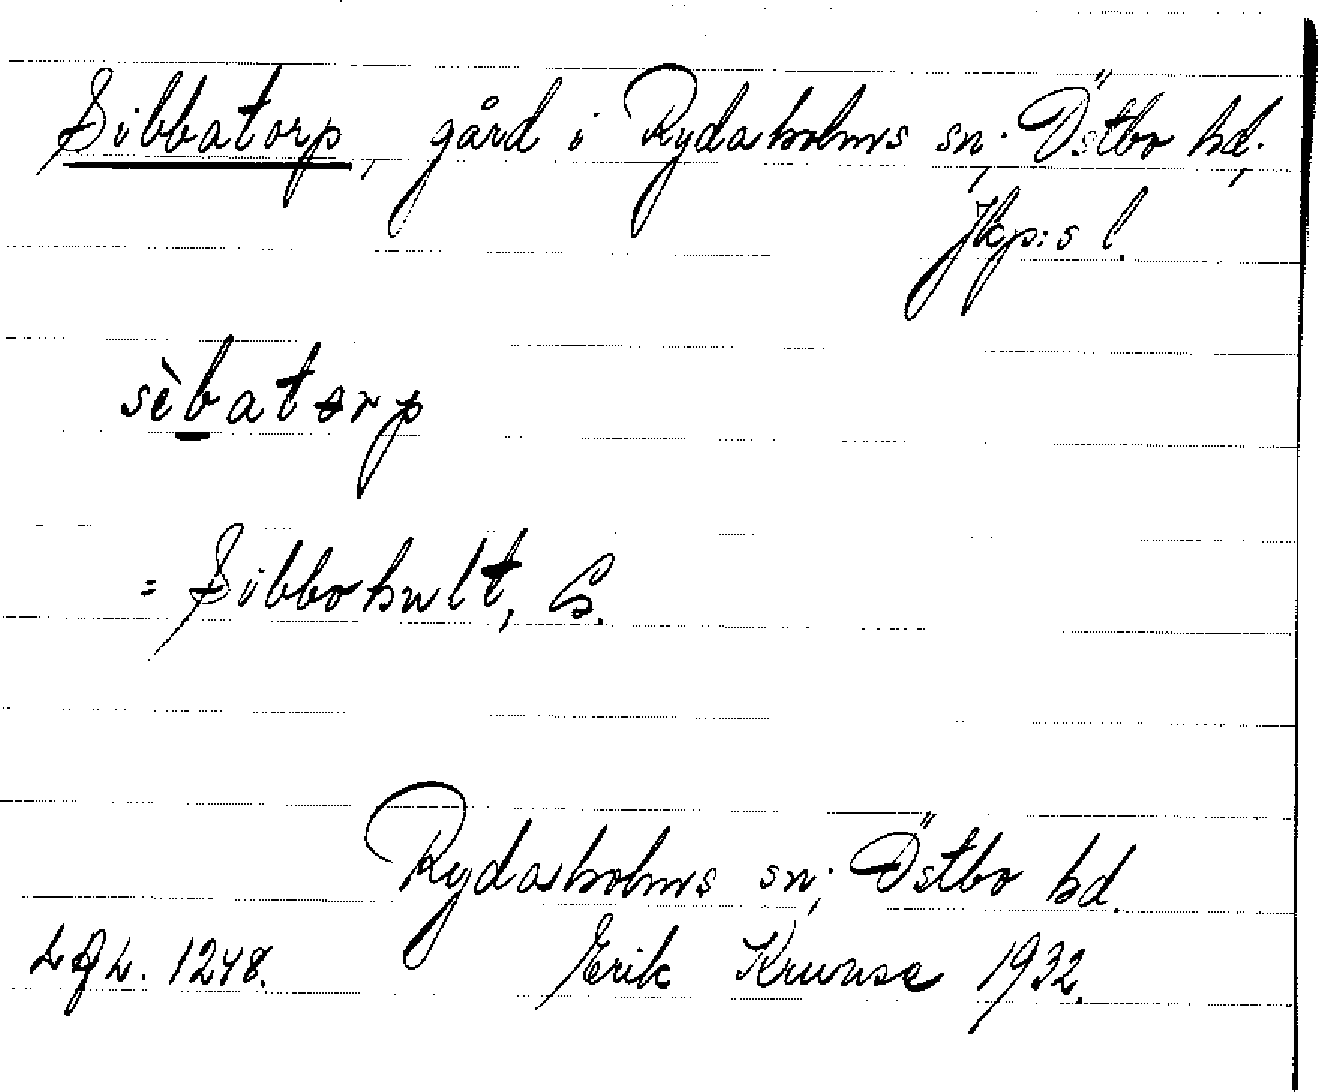 Sibbatorp, gård i Rydaholms sn; Östbo hd.,
Jkp:s l.
sèbatorp
= Sibbohult, S.
Rydaholms sn; Östbo hd.
1248. Erik Kruuse 1932.